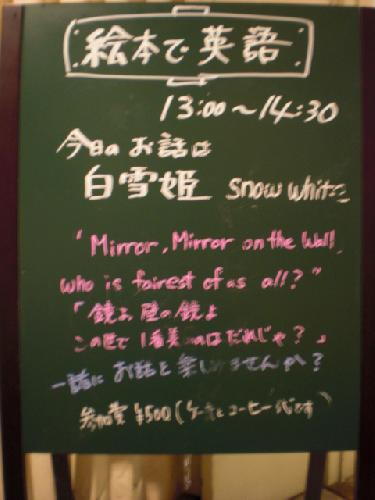 絵本で英語
13:00〜14:30
今日のお話は
白雪姫 snow white
"Mirror, Mirror on the Wall,
who is fairest of us all?"
「鏡よ 壁の鏡よ
この世で1番美しいのはだれじゃ?」
一緒にお話を楽しみませんか?
参加費 ¥500(ケーキとコーヒー代です)